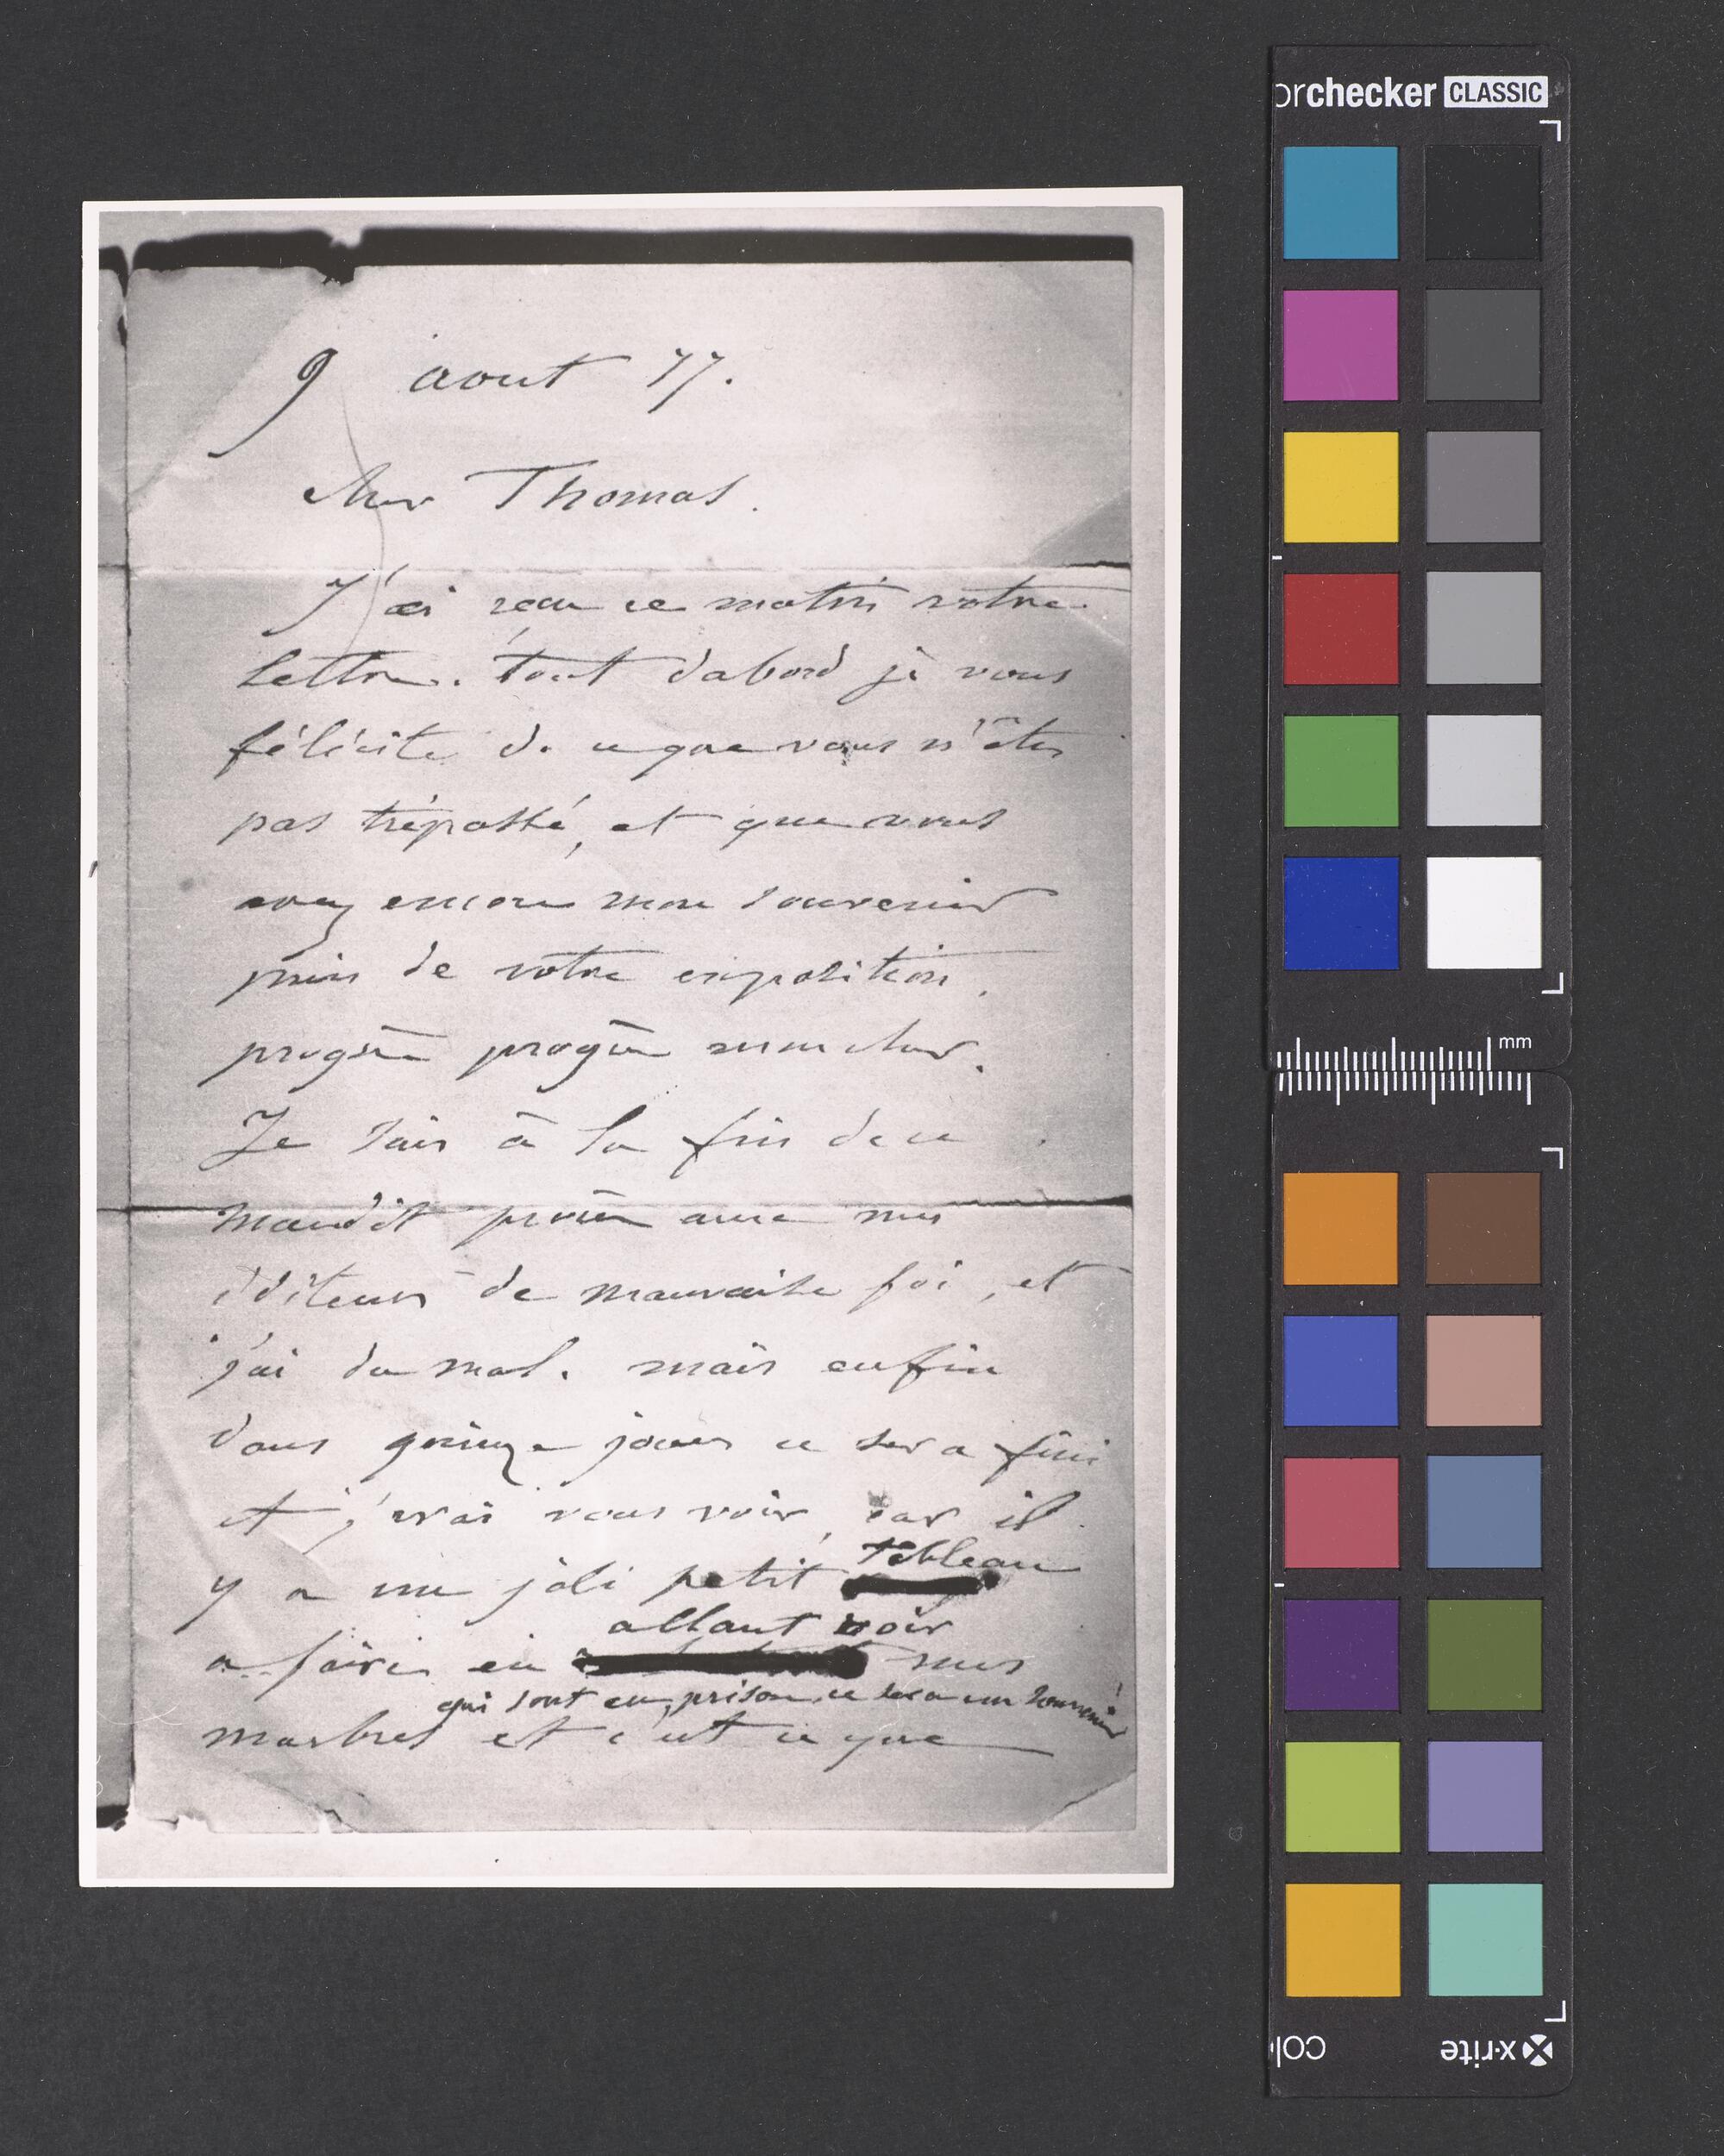 9 aout 77.
cher Thomas.
J'ai recu ce matin votre
lettre. tout dabord je vous
félicite de ce que vous n'êtes
pas trépassé, et que vous
avez encore mon souvenir
puis de votre exposition.
progrès progrès mon cher.
Je suis à la fin de ce
maudit procès avec mes
éditeurs de mauvaise foi, et
j'ai du mal. mais enfin
dans quinze jours ce sera fini
et j'irai vous voir, car il
y a un joli petit tableau
a faire en allant voir mes
qui sont en prison, ce sera un souvenir
marbres et c'est ce que
orchecker CLASSIC
mm
colo
x-rite